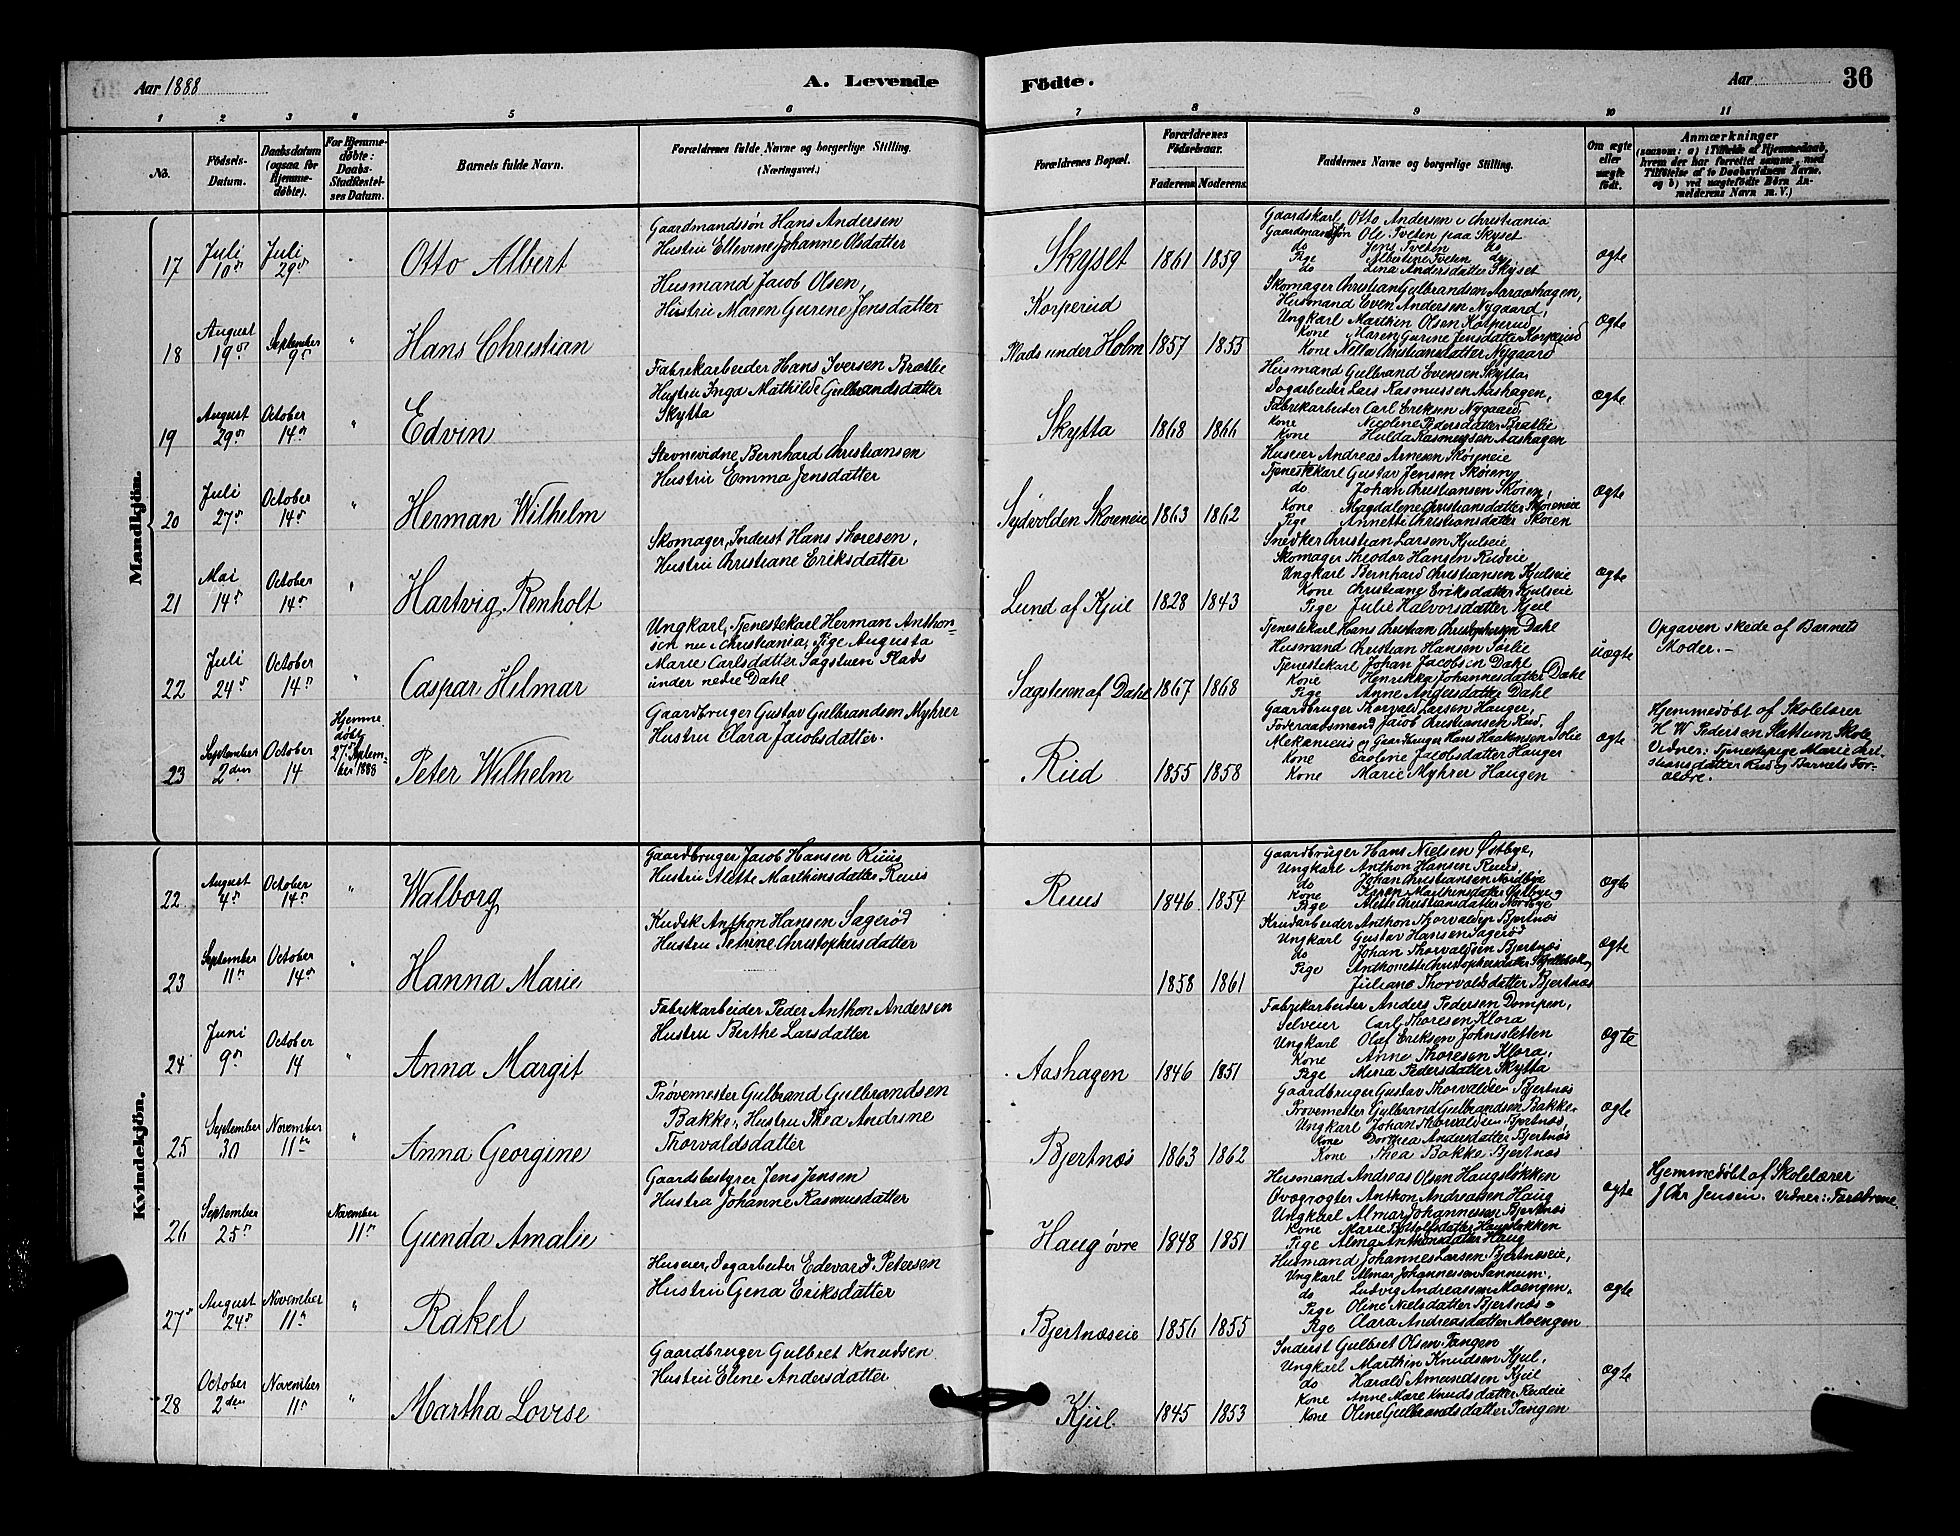 Aar 1888
A. Levende
Födte.
Aar
36
1 2 3 4 5 6 7 8 9 10 11
No.
Födsels-Datum.
Daabsdatum (ogsaa for Hjemme-döbte).
For Hjemme-döbte: Daabs-Stadfæstelses Datum.
Barnets fulde Navn.
Forældrenes fulde Navne og borgerlige Stilling. (Næringsvei.)
Forældrenes Bopæl.
Forældrenes Födselsaar.
Faderens. Moderens.
Faddernes Navne og borgerlige Stilling.
Om ægte eller uægte födt.
Anmærkninger
(saasom: a) i Tilfælde af Hjemmedaab, hvem der har forrettet samme, med Tilföielse af to Daabsvidners Navne, og b) ved uægtefödte Börn Anmelderens Navn m. V.)
Mandkjön.
17 Juli 10de Juli 29de " Otto Albert
Gaardmandssøn Hans Andersen
Hustru Ellevine Johanne Olsdatter
Skyset 1861 1859
Gaardskarl Otto Andersen i Christiania
Gaardmandssøn Ole Tveten paa Skyset
do Jens Tveten do
Pige Albertine Tveten do
do Lina Andersdatter Skyset
ægte
18 August 19de September 9de " Hans Christian
Husmand Jacob Olsen,
Hustru Maren Gurine Jensdatter
Korperud
Plads under Holm 1857 1855
Skomager Christian Gulbrandsen Aaraashagen,
Husmand Even Andersen Nygaard,
Ungkarl Marthin Olsen Korperud,
Kone Maren Gurine Jensdatter Korperud
Kone Netta Christiansdatter Nygaard
ægte
19 August 29de October 14de " Edvin
Fabrikarbeider Hans Iversen Bratlie
Hustru Inga Mathilde Gulbrandsdatter
Skytta
Skytta 1868 1866
Husmand Gulbrand Evensen Skytta,
Dagarbeider Lars Rasmussen Aashagen,
Fabrikarbeider Carl Eriksen Nygaard,
Kone Nicoline Pedersdatter Bratlie
Kone Hulda Rasmussen Aashagen
ægte
20 Juli 27de October 14de " Herman Wilhelm
Stevnevidne Bernhard Christiansen
Hustru Emma Jensdatter
Sydvolden Skøreneie 1863 1862
Huseier Andreas Arnesen Skøreneie
Tjenestekarl Gustav Jensen Skøren,
do Johan Christiansen Skøren,
Kone Magdalene Christiansdatter Skøreneie
Pige Annette Christiansdatter Skøren
ægte
21 Mai 14de October 14de " Hartvig Renholt
Skomager, Inderst Hans Thoresen,
Hustru Christiane Eriksdatter
Lund af Kjul 1828 1843
Snedker Christian Larsen Kjulseie
Skomager Theodor Hansen Rudeie
Ungkarl Bernhard Christiansen Kjulseie
Kone Christiane Eriksdatter Kjulseie
Pige Julie Halvorsdatter Kjul
ægte
22 Juli 24de October 14de " Caspar Hilmar
Ungkarl, Tjenestekarl Herman Anthon-
sen nu i Christiania, Pige Augusta
Marie Carlsdatter Sagstuen Plads
under nedre Dahl
Sagstuen af Dahl 1867 1868
Tjenestekarl Hans Christian Christophersen Dahl
Husmand Christian Hansen Sørlie
Tjenestekarl Johan Jacobsen Dahl
Kone Henrikka Johannesdatter Dahl
Pige Anne Andersdatter Dahl
uægte
Opgaven skede af Barnets
Moder.-
23 September 2den October 14 Hjemme-
døbt
27de Septem-
ber 1888
Peter Wilhelm
Gaardbruger Gustav Gulbrandsen Myhrer
Hustru Clara Jacobsdatter.
Rud 1855 1858
Gaardbruger Thorvald Larsen Hauger,
Føderaadsmand Jacob Christiansen Rud.
Mekanicus og Gaardbruger Hans Haakensen Solie
Kone Caroline Jacobsdatter Hauger
Kone Marie Myhrer Haugen
ægte
Hjemmedøbt af Skolelærer
H W Pedersen Slattum Skole
Vidner: Tjenestepige Marie Chri-
stiansdatter Rud og Barnets For-
ældre.
Kvindekjön.
22 August 4de October 14de " Walborg
Gaardbruger Jacob Hansen Ruus
Hustru Alette Marthinsdatter Ruus
Ruus 1846 1854
Gaardbruger Hans Nielsen Østbye,
Ungkarl Anthon Hansen Ruus,
do Johan Christiansen Nordbye
Kone Karen Marthinsdatter Østbye og
Pige Mette Christiansdatter Nordbye
ægte
23 September 11te October 14de " Hanna Marie
Kudsk Anthon Hansen Sagerød
Hustru Petrine Christophersdatter
1858 1861
Krudarbeider Anthon Thorvaldsen Bjertnæs
Ungkarl Gustav Hansen Sagerød
do Johan Thorvaldsen Bjertnæs
Pige Anthonette Christophersdatter
Juliane Thorvaldsdatter Bjertnæs
ægte
24 Juni 9de October 14 " Anna Margit
Fabrikarbeider Peder Anthon Andersen
Hustru Berthe Larsdatter
Aashagen 1846 1851
Fabrikarbeider Anders Pedersen Dompen,
Selveier Carl Thoresen Klora
Ungkarl Olaf Eriksen Johnssletten
Kone Anne Thoresen Klora,
Pige Mina Pedersdatter Skytta
ægte
25 September 30 November 11te " Anna Georgine
Prøvemester Gulbrand Gulbrandsen
Bakke, Hustru Thea Andrine
Thorvaldsdatter
Bjertnæs 1863 1862
Gaardbruger Gustav Thorvaldsen Bjertnæs
Prøvemester Gulbrand Gulbrandsen Bakke
Ungkarl Johan Thorvaldsen Bjertnæs,
Kone Dorthea Andersdatter Bjertnæs
Kone Thea Bakke Bjertnæs
ægte
26 September 25de November 11te Gunda Amalie
Gaardsbestyrer Jens Jensen
Hustru Johanne Rasmusdatter
Haug øvre 1848 1851
Husmand Andreas Olsen Haugsløkken
Qvægrøgter Anthon Andreassen Haug
Ungkarl Almar Johannessen Bjertnæs
Kone Marie Haugsløkken
Pige Alma Anthonsdatter Haug
ægte
Hjemmedøbt af Skolelærer
J Chr Jensen. Vidner: Forældrene.
27de August 24de November 11te " Rakel
Huseier, Dagarbeider Edevard Petersen
Hustru Gena Eriksdatter
Bjertnæseie 1856 1855
Husmand Johannes Larsen Bjertnæseie,
Ungkarl Almar Johannessen Tanneum,
do Ludvig Andreassen Moengen,
Pige Oline Nielsdatter Bjertnæs og
Pige Clara Andreasdatter Moengen
ægte
28 October 2den November 11te " Martha Lovise
Gaardbruger Gulbret Knudsen
Hustru Eline Andersdatter
Kjul. 1845 1853
Inderst Gulbret Olsen Tangen
Ungkarl Marthin Knudsen Kjul,
do Harald Amundsen Kjul
Kone Anne Mare Knudsdatter Rudeie
Kone Oline Gulbrandsdatter Tangen
ægte